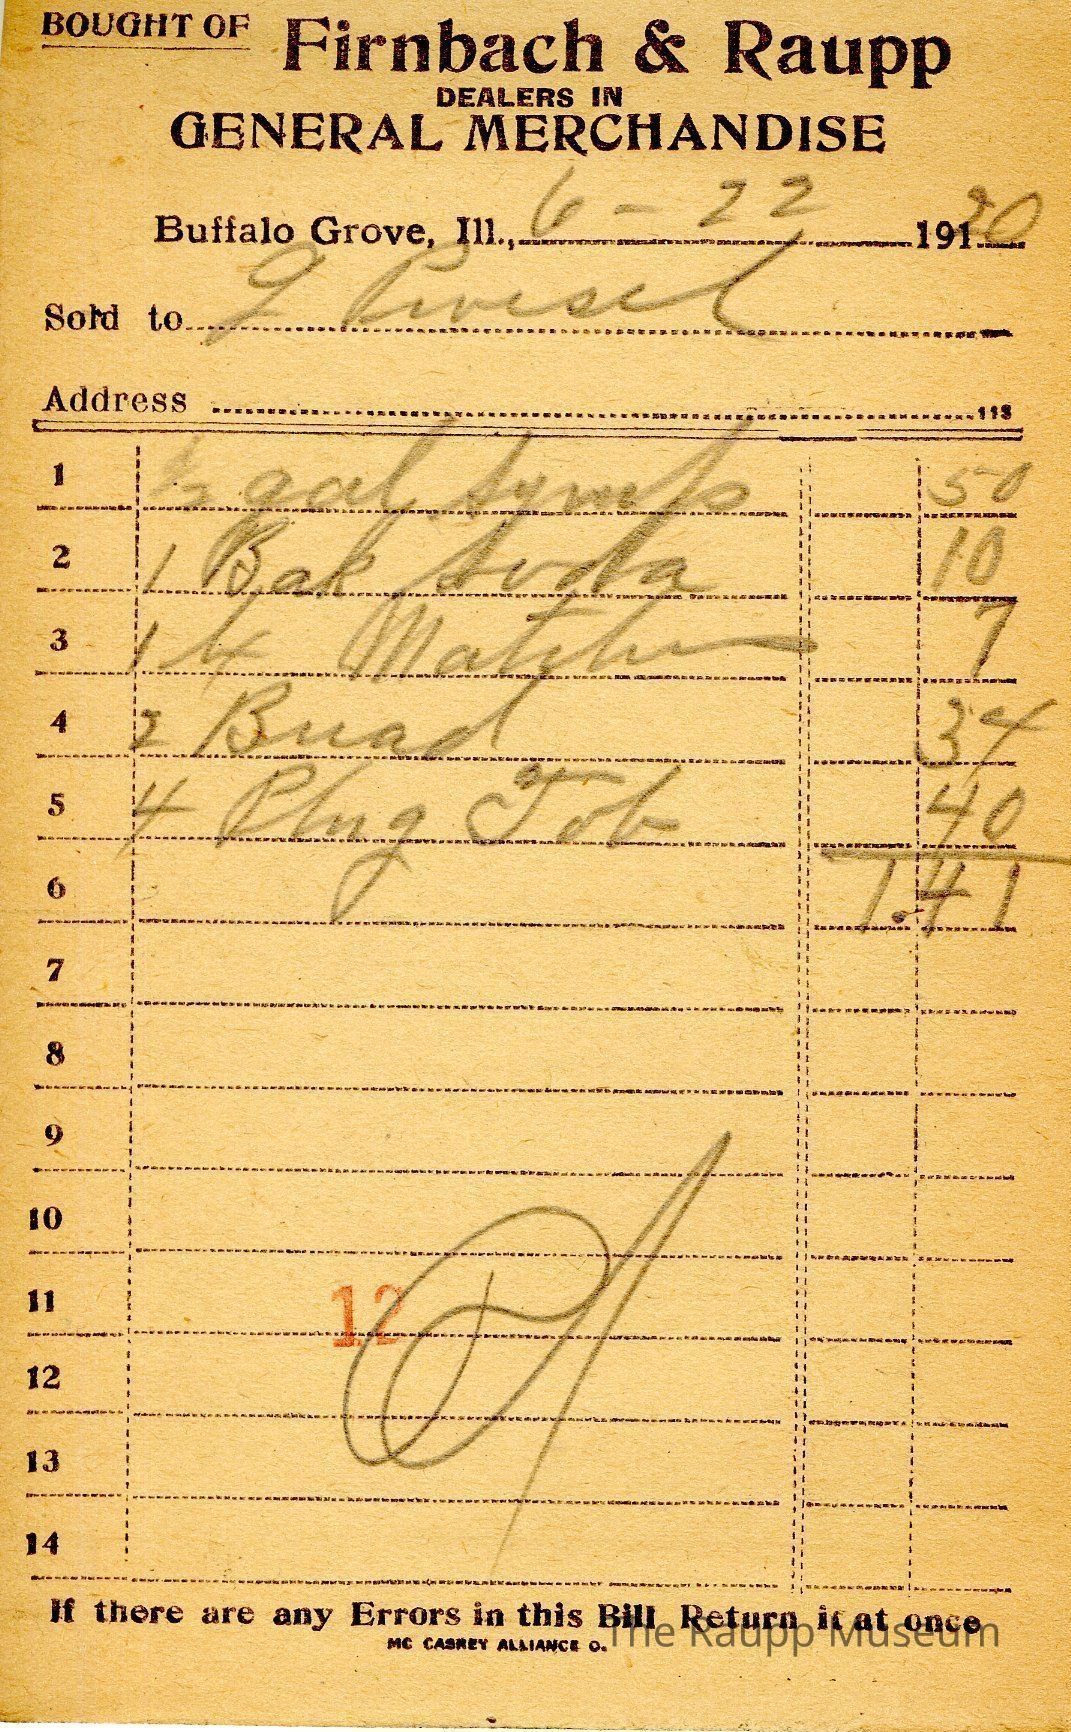 BOUGHT OF Firnbach & Raupp
DEALERS IN
GENERAL MERCHANDISE
Buffalo Grove, Ill., 6 - 22 191 20
Sold to
Address 113
1 ½ gal Syrup 50
2 1 Bak Soda 10
3 1 Matches 7
4 2 Bread 34
5 4 Plug Tob 40
6 1.41
7
8
9
10
11
12
12
13
14
If there are any Errors in this Bill Return it at once
MC CASKEY ALLIANCE O.
The Raupp Museum